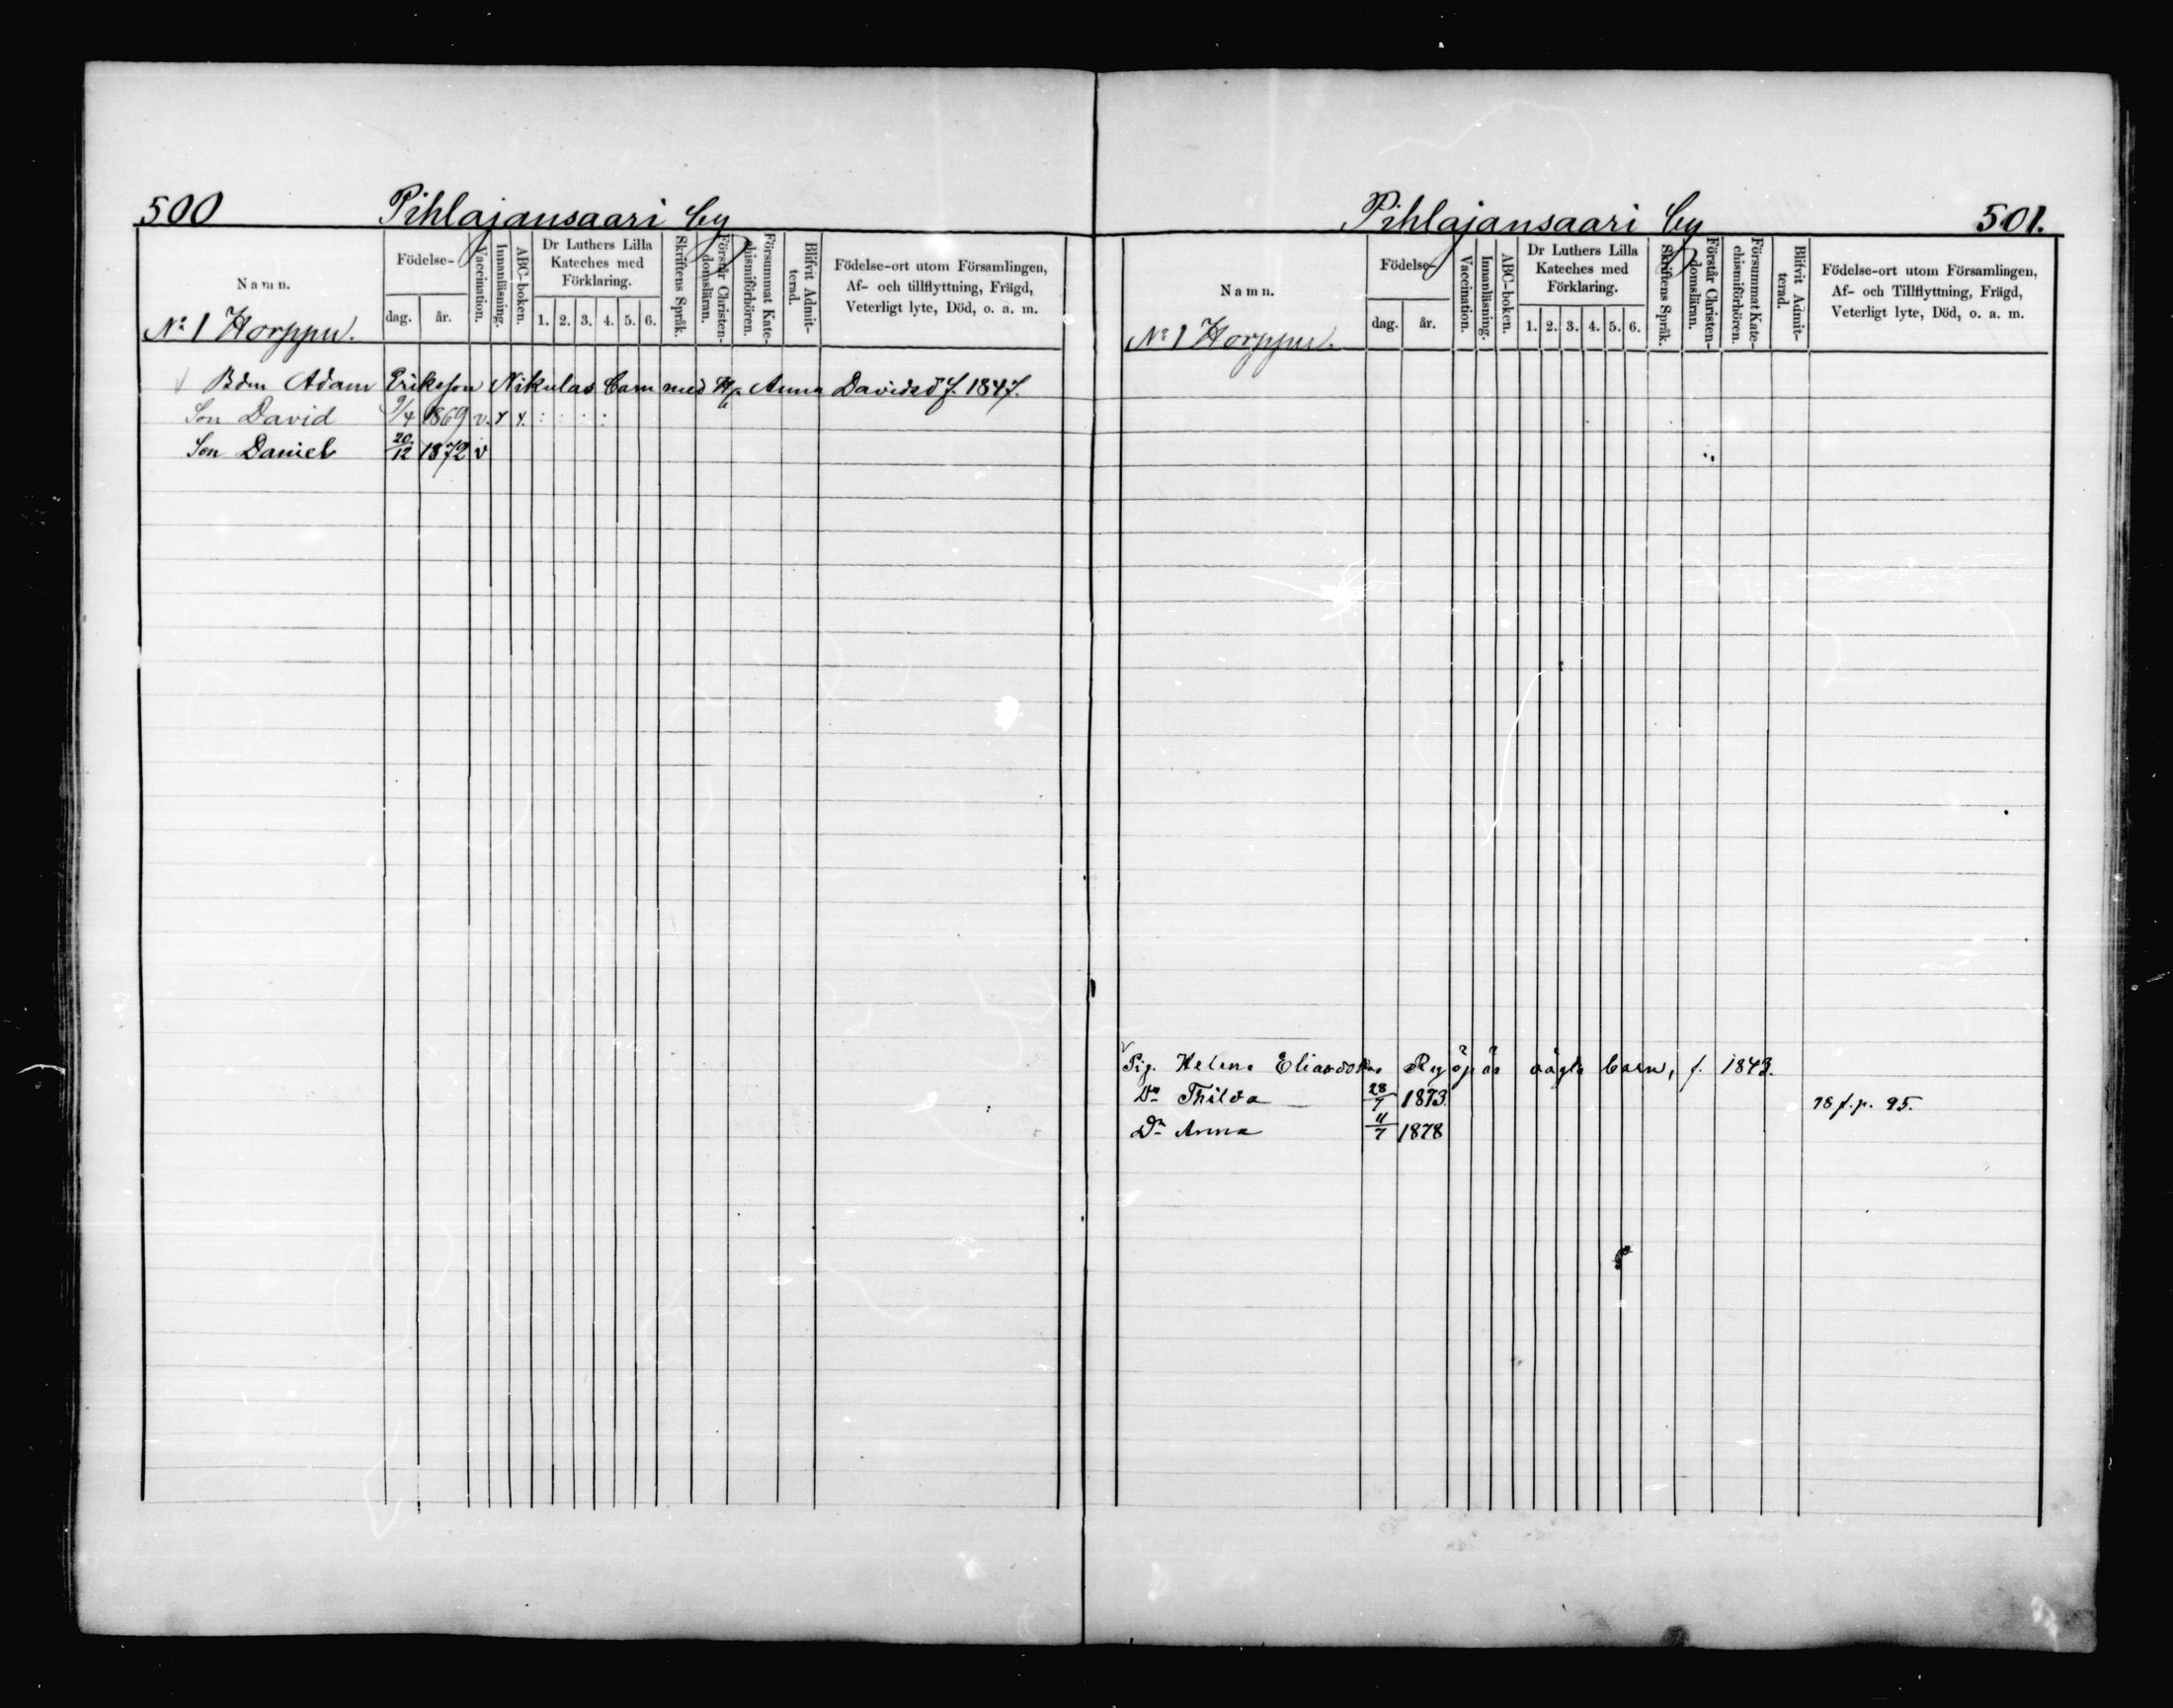 500 Pihlajansaari by
Namn.
Födelse-
dag.
år.
Vaccination.
Innanläsning.
ABC-boken.
Dr Luthers Lilla
Kateches med
Förklaring.
1. 2. 3. 4. 5. 6.
Skriftens Språk.
Förstår Christen-
domsläran.
Försummat Kate-
chismiförhören.
Blifvit Admit-
terad.
Födelse-ort utom Församlingen,
Af- och tillflyttning, Frägd,
Veterligt lyte, Död, o. a. m.
No 1 Horppu.
Bdm Adam Eriksson Nikulas barn med H. Anna Davidsd f. 1847.
Son David 9/4 1869 v. x x.
Son Daniel 20/12 1872 v
Pihlajansaari by 501.
Namn.
Födelse-
dag.
år.
Vaccination.
Innanläsning.
ABC-boken.
Dr Luthers Lilla
Kateches med
Förklaring.
1. 2. 3. 4. 5. 6.
Skriftens Språk.
Förstår Christen-
domsläran.
Försummat Kate-
chismiförhören.
Blifvit Admit-
terad.
Födelse-ort utom Församlingen,
Af- och Tillflyttning, Frägd,
Veterligt lyte, Död, o. a. m.
No 1 Horppu.
Pig. Helena Eliasdotter oägta barn, f. 1843.
Dr Thilda 28/7 1873. 78 f. p. 95.
Dr Anna 11/7 1878